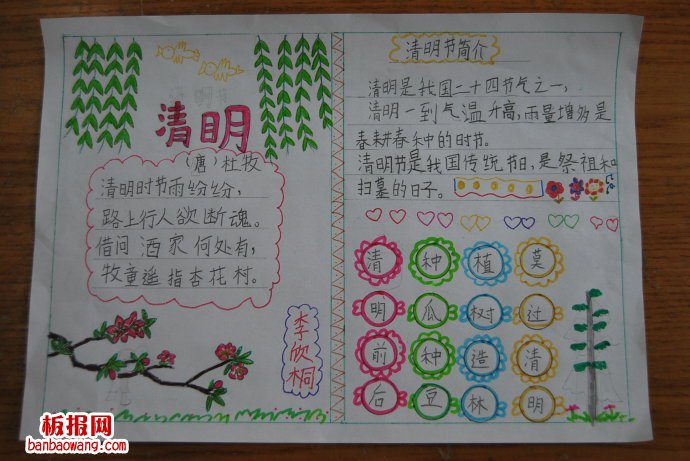 清明
（唐）杜牧
清明时节雨纷纷，
路上行人欲断魂。
借问酒家何处有，
牧童遥指杏花村。
李欣桐
清明节简介
清明是我国二十四节气之一，
清明一到气温升高，雨量增多是
春耕春种的时节。
清明节是我国传统节日，是祭祖和
扫墓的日子。
清 种 植 莫
明 瓜 树 过
前 种 造 清
后 豆 林 明
板报网
banbaowang.com